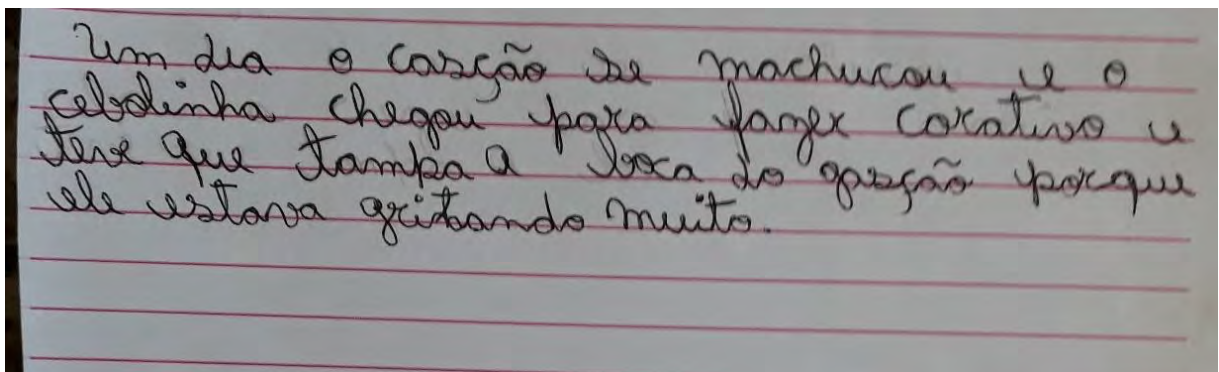 Um dia o casção se machucou e o
cebolinha chegou para fazer corativo e
teve que tampa a boca do gasção porque
ele estava gritando muito.